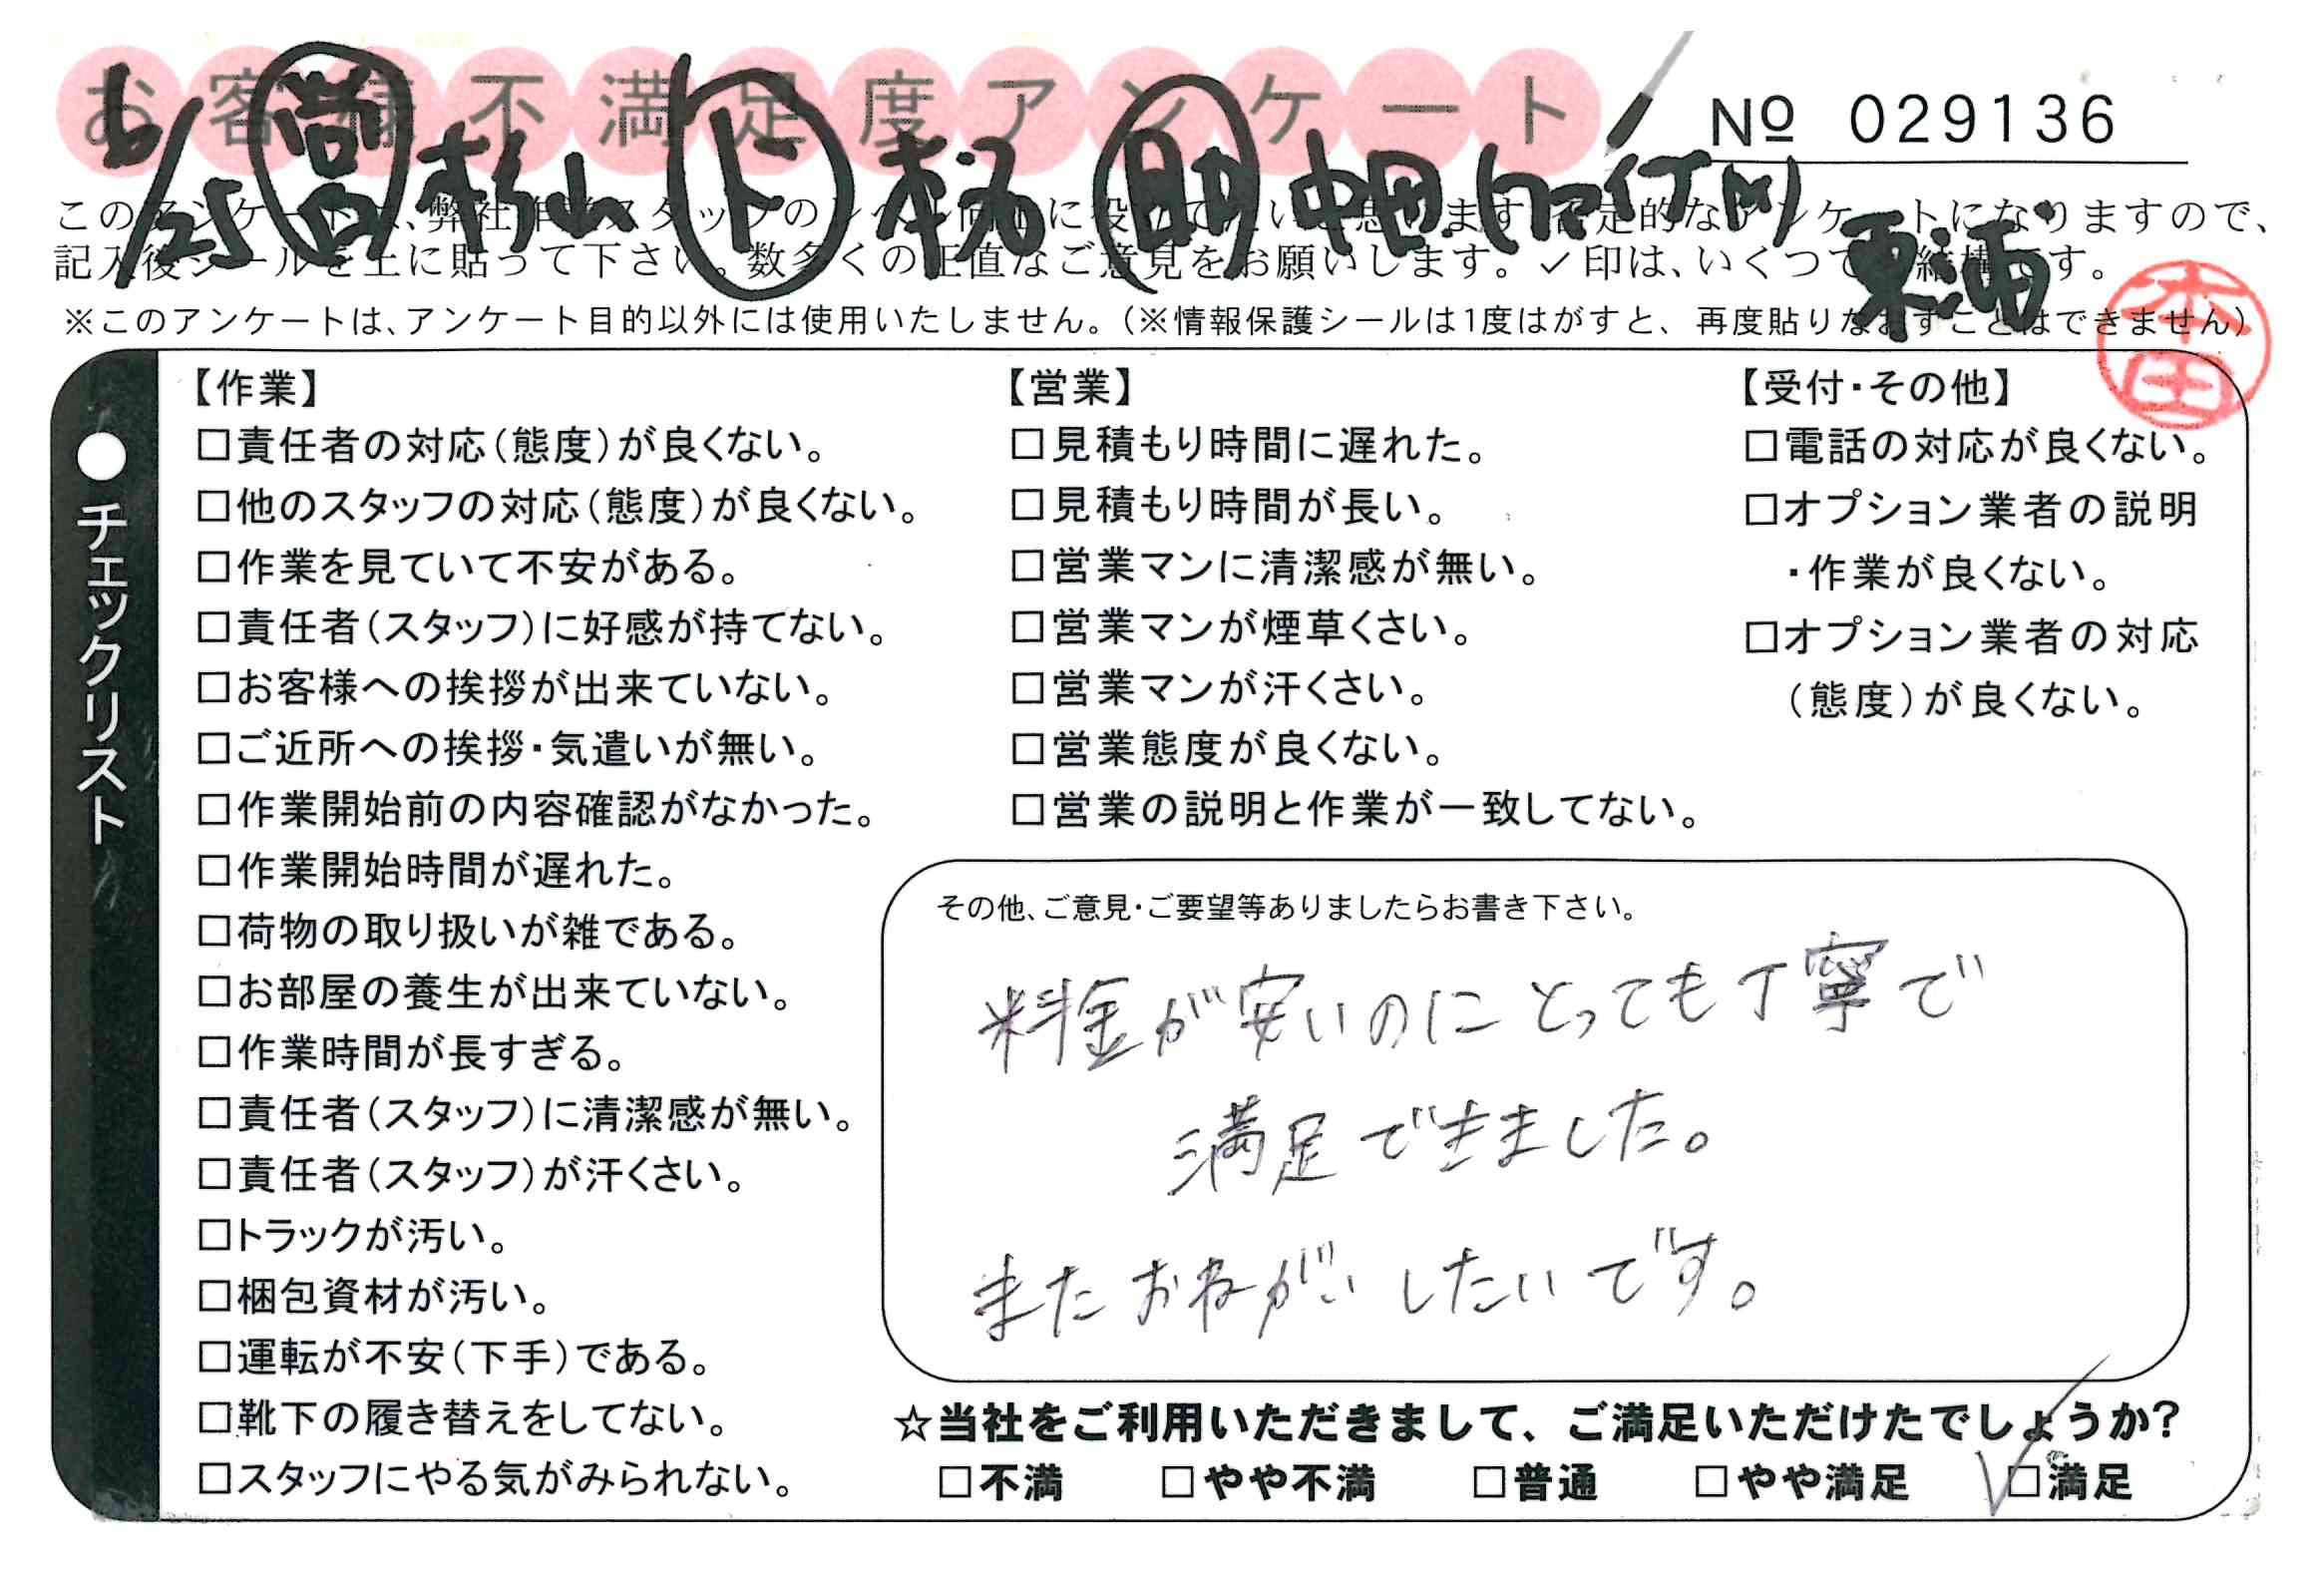 お客様不満足度アンケート
№ 029136
6/25 営 杉山 ト 助 中田
このアンケートは、弊社作業スタッフのレベル向上に役立てたいと思います。否定的なアンケートになりますので、
記入後シールを上に貼って下さい。数多くの正直なご意見をお願いします。✓印は、いくつでも結構です。
※このアンケートは、アンケート目的以外には使用いたしません。（※情報保護シールは1度はがすと、再度貼りなおすことはできません）
本田
●チェックリスト
【作業】
□責任者の対応（態度）が良くない。
□他のスタッフの対応（態度）が良くない。
□作業を見ていて不安がある。
□責任者（スタッフ）に好感が持てない。
□お客様への挨拶が出来ていない。
□ご近所への挨拶・気遣いが無い。
□作業開始前の内容確認がなかった。
□作業開始時間が遅れた。
□荷物の取り扱いが雑である。
□お部屋の養生が出来ていない。
□作業時間が長すぎる。
□責任者（スタッフ）に清潔感が無い。
□責任者（スタッフ）が汗くさい。
□トラックが汚い。
□梱包資材が汚い。
□運転が不安（下手）である。
□靴下の履き替えをしてない。
□スタッフにやる気がみられない。
【営業】
□見積もり時間に遅れた。
□見積もり時間が長い。
□営業マンに清潔感が無い。
□営業マンが煙草くさい。
□営業マンが汗くさい。
□営業態度が良くない。
□営業の説明と作業が一致してない。
【受付・その他】
□電話の対応が良くない。
□オプション業者の説明
・作業が良くない。
□オプション業者の対応
（態度）が良くない。
その他、ご意見・ご要望等ありましたらお書き下さい。
料金が安いのにとっても丁寧で
満足できました。
またおねがいしたいです。
☆当社をご利用いただきまして、ご満足いただけたでしょうか？
□不満 □やや不満 □普通 □やや満足 ✓□満足